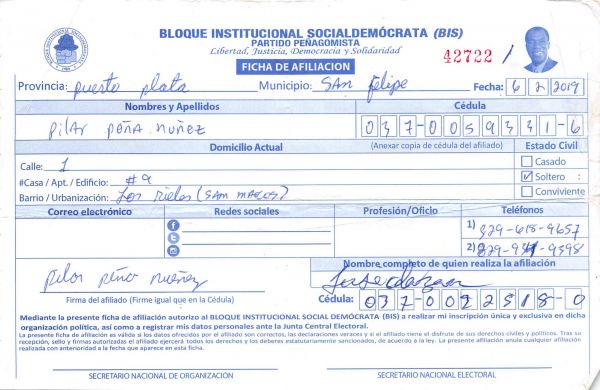 BLOQUE INSTITUCIONAL SOCIALDEMÓCRATA (BIS)
PARTIDO PEÑAGOMISTA
Libertad, Justicia, Democracia y Solidaridad
FICHA DE AFILIACION
42722 /
Provincia: puerto plata Municipio: SAN felipe Fecha: 6 2 2019
Nombres y Apellidos Cédula
pilar PEÑA NUÑEZ 037-0059331-6
Domicilio Actual (Anexar copia de cédula del afiliado) Estado Civil
Calle: 1
Casado
#Casa / Apt. / Edificio: #9
Soltero
Barrio / Urbanización: Los rieles (SAM MARCOS)
Conviviente
Correo electrónico Redes sociales Profesión/Oficio Teléfonos
1) 829-618-9657
2) 829-951-9398
Nombre completo de quien realiza la afiliación
pilar peña nuñez
Firma del afiliado (Firme igual que en la Cédula) Cédula: 037-0022818-0
Mediante la presente ficha de afiliación autorizo al BLOQUE INSTITUCIONAL SOCIAL DEMÓCRATA (BIS) a realizar mi inscripción única y exclusiva en dicha
organización política, así como a registrar mis datos personales ante la Junta Central Electoral.
La presente ficha de afiliación es válida si los datos ofrecidos por el afiliado son correctos, las declaraciones veraces y si el afiliado tiene el disfrute de sus derechos civiles y políticos. Tras su
recepción, sello y firmas autorizadas el afiliado ejercerá todos los derechos y los deberes estatutariamente sancionados, de acuerdo a la ley. La presente afiliación anula cualquier afiliación
realizada con anterioridad a la fecha que aparece en esta ficha.
SECRETARIO NACIONAL DE ORGANIZACIÓN SECRETARIO NACIONAL ELECTORAL